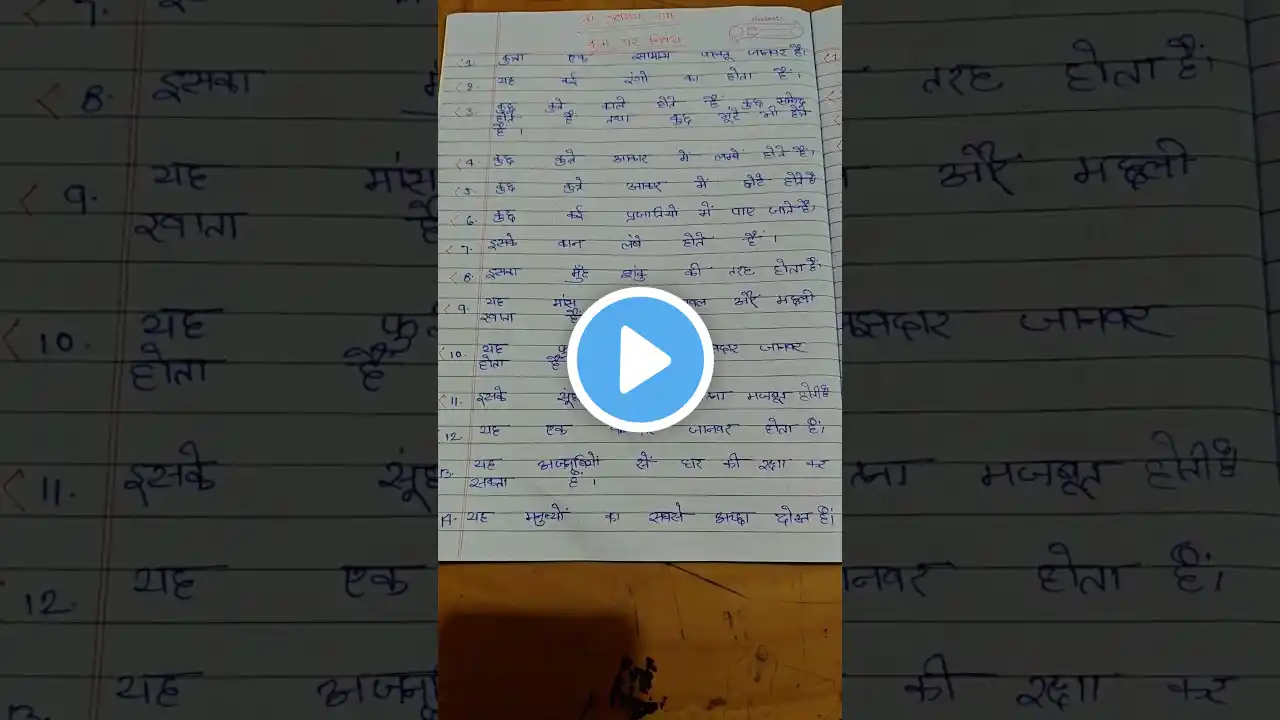 कुत्ता पर निबंध
1. कुत्ता एक सामान्य पालतू जानवर है।
2. यह कई रंगो का होता है।
3. कुछ कुत्ते काले होते हैं कुछ सफेद
होते हैं तथा कुछ भूरे भी होते
हैं ।
4. कुछ कुत्ते आकार में लम्बे होते है।
5. कुछ कुत्ते आकार में छोटे होते है
6. कुछ कई प्रजातियो में पाए जाते है।
7. इसके कान लंबे होते हैं ।
8. इसका मुँह शंकु की तरह होता हैं।
9. यह मांस और मछली
खाता है
10. यह जानवर
होता है
11. इसके मजबूत होती है
12. यह एक जानवर होता हैं।
13. यह अजनबियों से घर की रक्षा कर
सकता हैं ।
14. यह मनुष्यों का सबसे अच्छा दोस्त हैं।